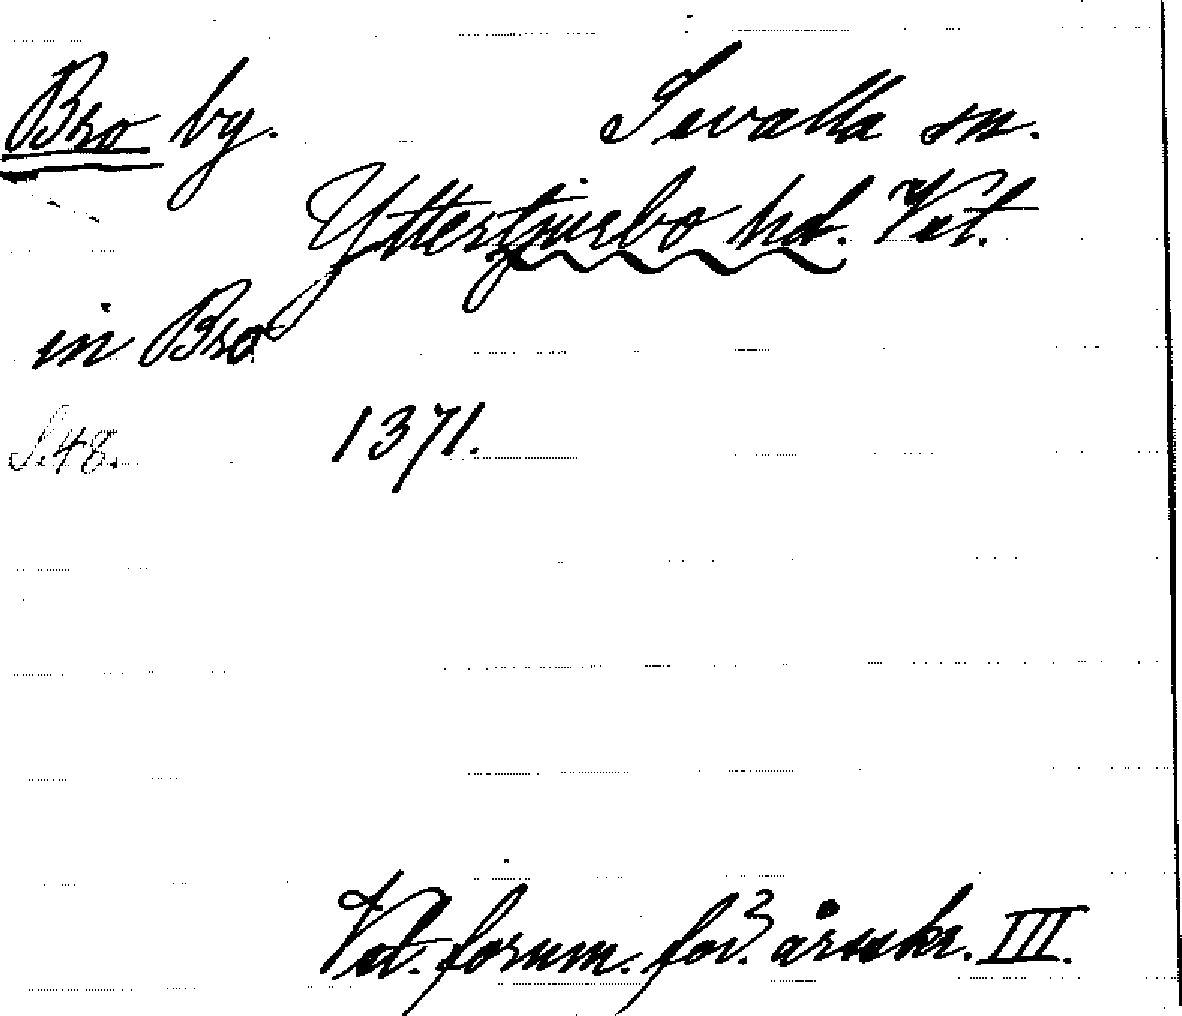 Bro by. Sevalla sn.
Yttertjurbo hd. Vstl.
in Bro
S. 48. 1371.
Vstl. fornm. för:s årsskr. III.